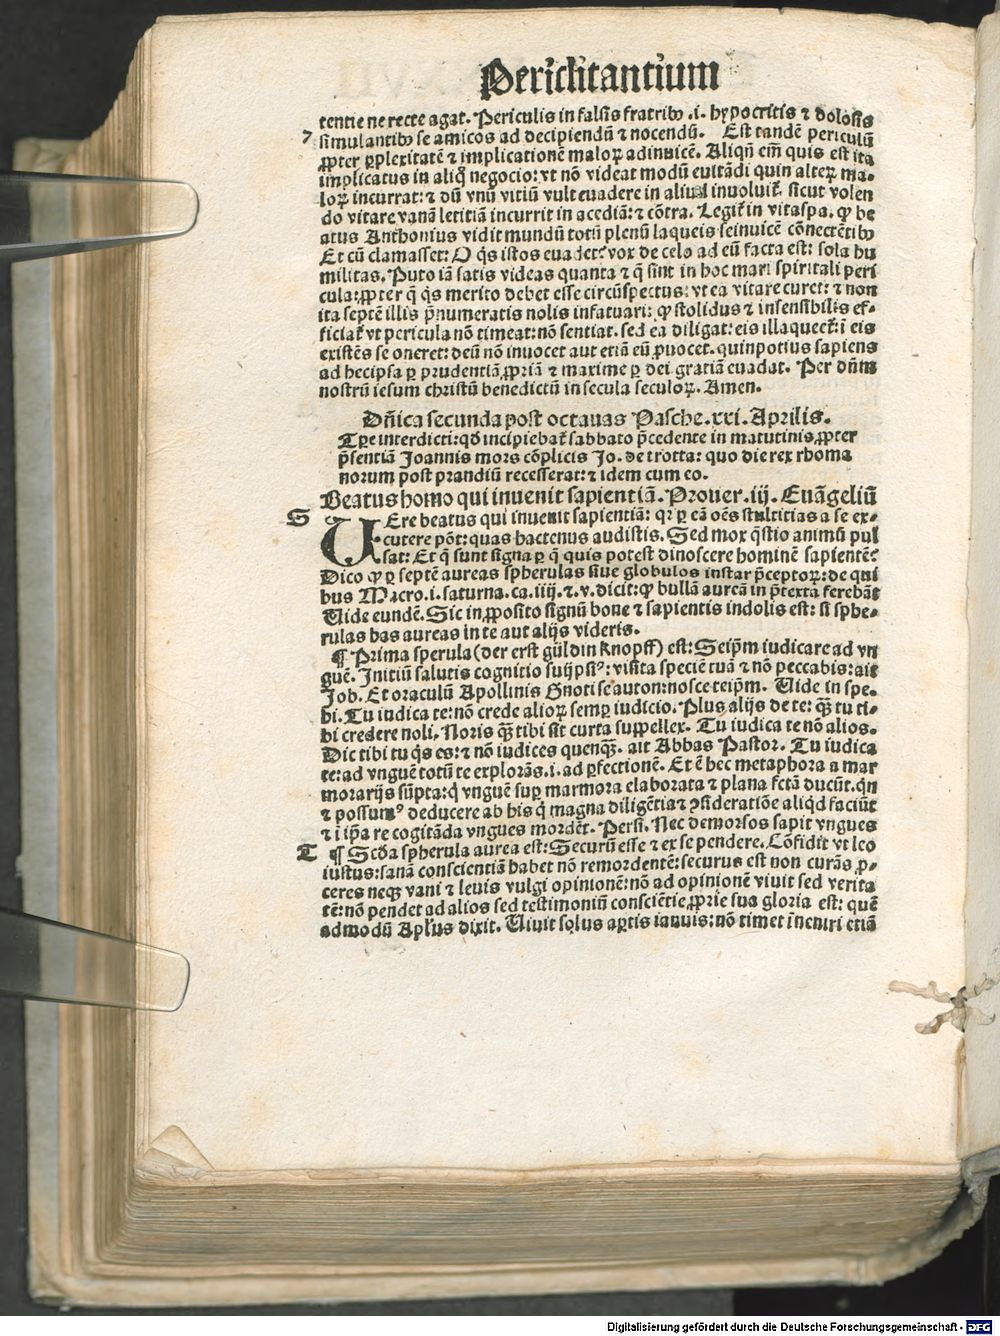 Periclitantium
tentie ne recte agat. Periculis in falsis fratribꝰ .i. hypocritis ⁊ dolosis
7 simulantibꝰ se amicos ad decipiendū ⁊ nocendū. Est tandē periculū
ꝓpter ꝑplexitatē ⁊ implicationē maloꝝ adinuicē. Aliqñ em̄ quis est ita
implicatus in aliq̄ negocio: vt nō videat modū euitādi quin alteꝝ ma-
loꝝ incurrat: ⁊ dū vnū vitiū vult euadere in aliud inuoluit᷑. sicut volen
do vitare vanā letitiā incurrit in acediā: ⁊ cōtra. Legit᷑ in vitaspa. ꝙ be
atus Anthonius vidit mundū totū plenū laqueis seinuicē cōnectētibꝰ
Et cū clamasset: O q̄s istos euadet? vox de celo ad eū facta est: sola hu
militas. Puto iā satis videas quanta ⁊ q̄ sint in hoc mari spiritali peri
cula: ꝓpter q̄ q̄s merito debet esse circūspectus: vt ea vitare curet: ⁊ non
ita septē illis p̄numeratis nolis infatuari: ꝙ stolidus ⁊ insensibilis ef-
ficiat᷑ vt pericula nō timeat: nō sentiat. sed ea diligat: eis illaqueet᷑: ī eis
existēs se oneret: deū nō inuocet aut etiā eū ꝓuocet. quinpotius sapiens
ad hec ipsa ꝑ prudentiā ꝓpriā ⁊ maxime ꝑ dei gratiā euadat. Per dn̄m
nostrū iesum christū benedictū in secula seculoꝝ. Amen.
Dn̄ica secunda post octauas Pasche. xxi. Aprilis.
Tꝑe interdicti: qd̄ incipiebat᷑ sabbato p̄cedente in matutinis ꝓpter
p̄sentiā Joannis mors cōplicis Jo. de trotta: quo die rex rhoma
norum post prandiū recesserat: ⁊ idem cum eo.
Beatus homo qui inuenit sapientiā. Prouer. iij. Euāgeliū
S VEre beatus qui inuenit sapientiā: qꝛ ꝑ eā oēs stultitias a se ex-
cutere pōt: quas hactenus audistis. Sed mox q̄stio animū pul
sat: Et q̄ sunt signa ꝑ q̄ quis potest dinoscere hominē sapientē?
Dico ꝙ ꝑ septē aureas spherulas siue globulos instar p̄ceptoꝝ: de qui
bus Macro. i. saturna. ca. iiij. ⁊. v. dicit: ꝙ bullā aureā in p̄texta ferebāt
Vide eundē. Sic in ꝓposito signū bone ⁊ sapientis indolis est: si sphe-
rulas has aureas in te aut alijs videris.
¶ Prima sperula (der erst güldin Knopff) est: Seip̄m iudicare ad vn
guē. Initiū salutis cognitio suijpsiꝰ: visita speciē tuā ⁊ nō peccabis: ait
Job. Et oraculū Apollinis Gnoti seauton: nosce teip̄m. Vide in spe-
bi. Tu iudica te: nō crede alioꝝ semꝑ iudicio. Plus alijs de te: q̄ꝫ tu ti-
bi credere noli. Noris q̄ꝫ tibi sit curta suppellex. Tu iudica te nō alios.
Dic tibi tu q̄s es: ⁊ nō iudices quenq̄ꝫ. ait Abbas Pastor. Tu iudica
te: ad vnguē totū te explorās .i. ad ꝑfectionē. Et ē hec metaphora a mar
morarijs sūpta: q̄ vnguē suꝑ marmora elaborata ⁊ plana fctā ducūt. qn̄
⁊ possumꝰ deducere ab his q̄ magna diligētia ⁊ ꝯsideratiōe aliqd̄ faciūt
⁊ ī ip̄a re cogitāda vngues mordēt. Persi. Nec demorsos sapit vngues
T ¶ Scd̄a spherula aurea est: Securū esse ⁊ ex se pendere. Cōfidit vt leo
iustus: sanā conscientiā habet nō remordentē: securus est non curās ꝓ-
ceres neqꝫ vani ⁊ leuis vulgi opinionē: nō ad opinionē viuit sed verita
tē: nō pendet ad alios sed testimoniū consciētie ꝓprie sua gloria est: quē
admodū Apl̄us dixit. Viuit solus aꝑtis ianuis: nō timet īueniri etiā
Digitalisierung gefördert durch die Deutsche Forschungsgemeinschaft - DFG